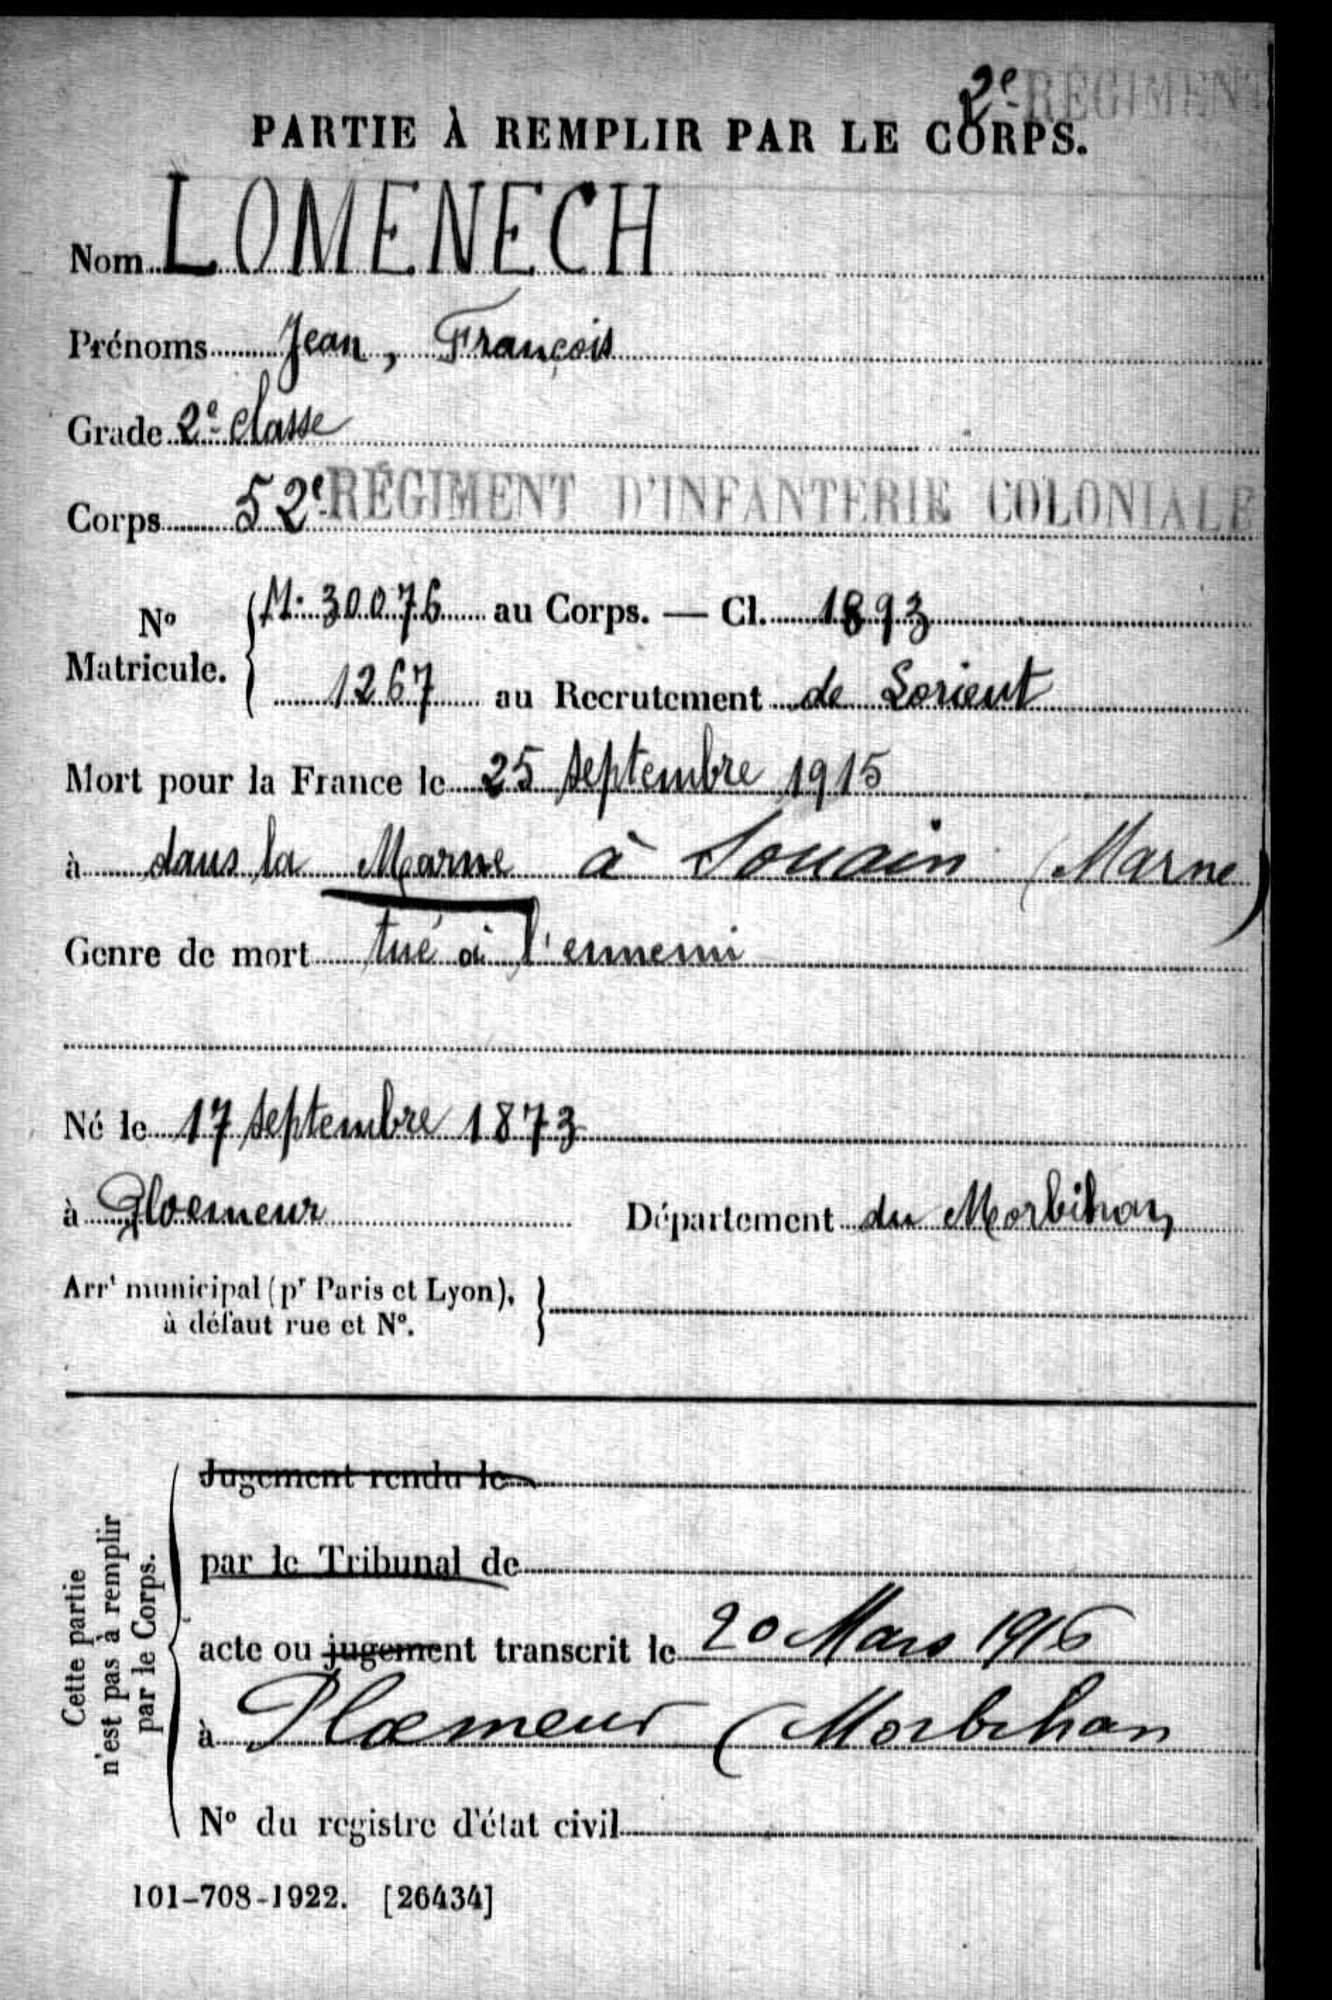 2e RÉGIMENT
PARTIE À REMPLIR PAR LE CORPS.
Nom LOMENECH
Prénoms Jean, François
Grade 2e classe
Corps 52e RÉGIMENT D'INFANTERIE COLONIALE
No Matricule. { M. 30076 au Corps. — Cl. 1893
1267 au Recrutement de Lorient
Mort pour la France le 25 septembre 1915
à dans la Marne à Souain (Marne)
Genre de mort tué à l'ennemi
Né le 17 septembre 1873
à Ploemeur Département du Morbihan
Arrt municipal (pr Paris et Lyon), }
à défaut rue et No.
Cette partie
n'est pas à remplir
par le Corps.
Jugement rendu le
par le Tribunal de
acte ou jugement transcrit le 20 Mars 1916
à Plœmeur (Morbihan
No du registre d'état civil
101-708-1922. [26434]